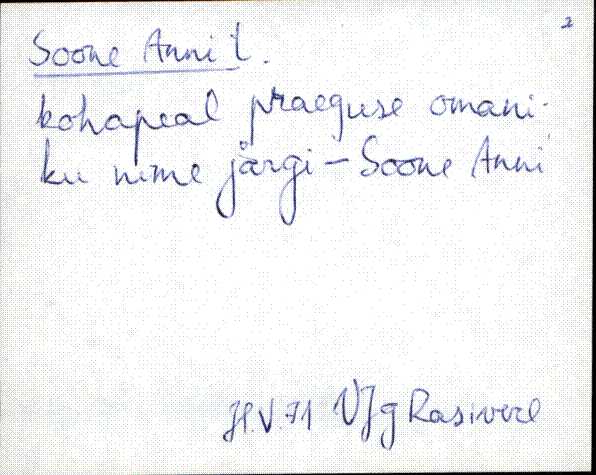 2
Soone Anni t.
kohapeal praeguse omani-
ku nime järgi – Soone Anni
V.71 VJg Rasivere